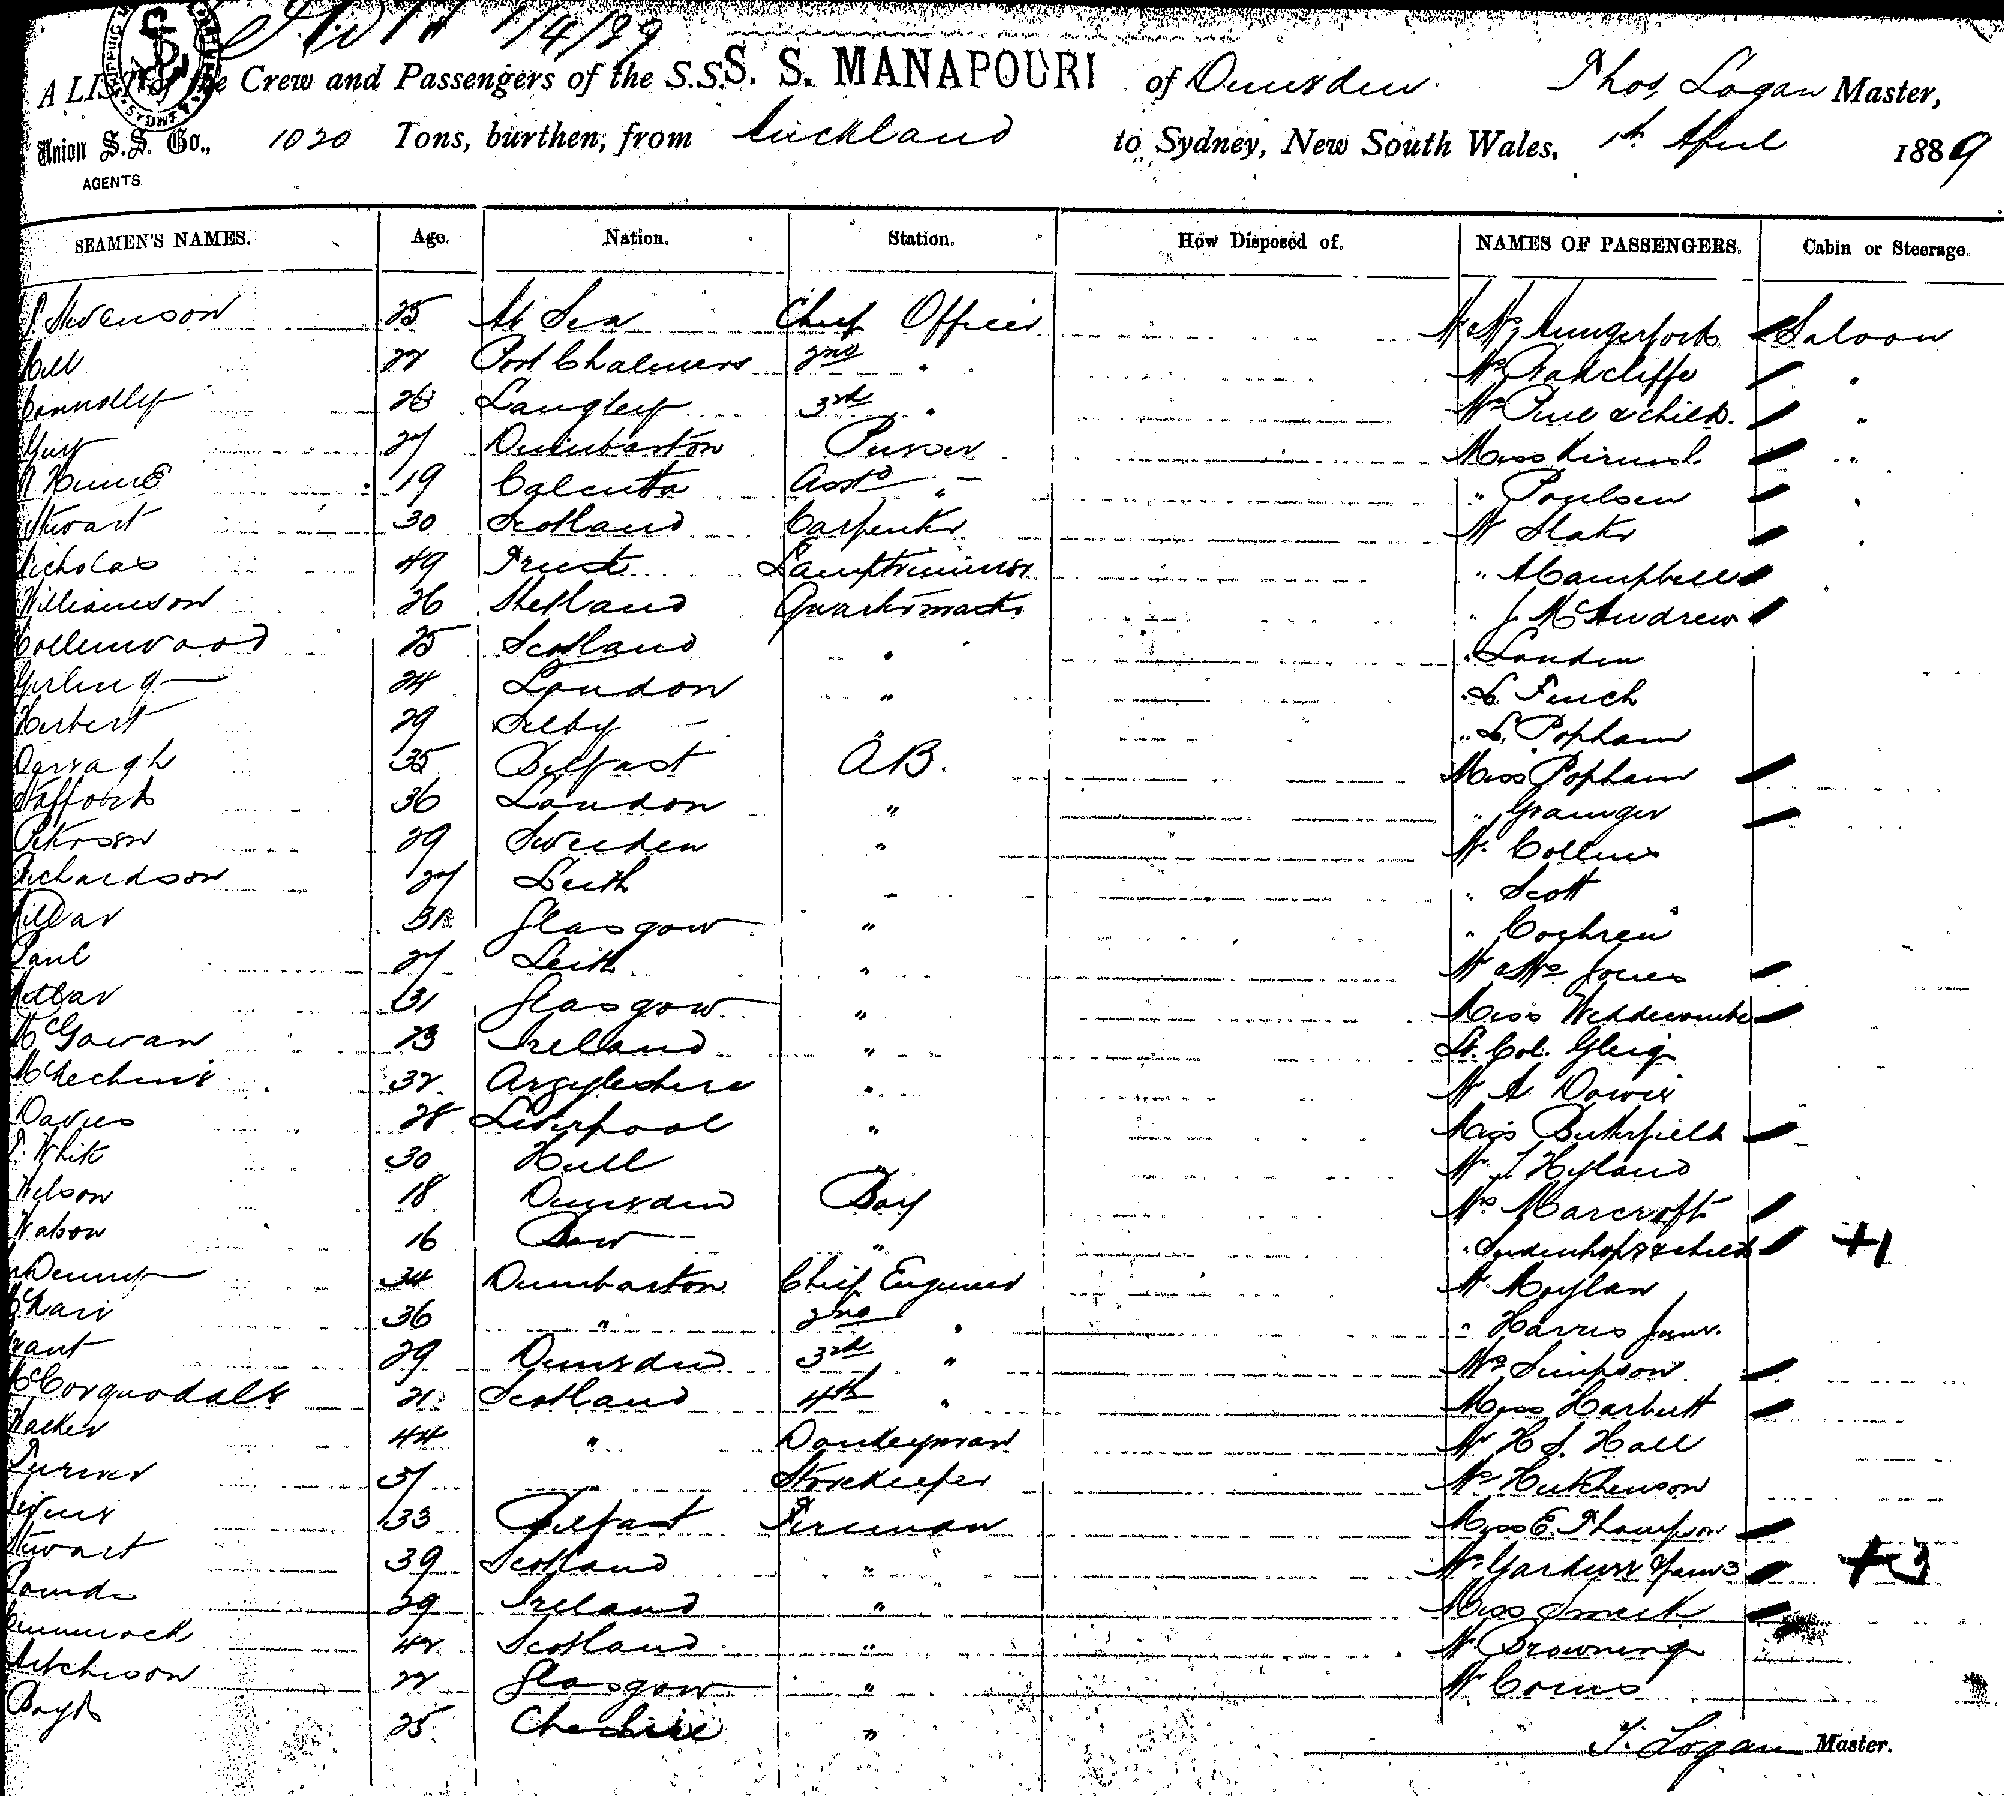 1/4/89
A LIST of the Crew and Passengers of the S.S. S. S. MANAPOURI of Dunedin Thos. Logan Master,
Union S.S. Co., 1020 Tons, burthen, from Auckland to Sydney, New South Wales, 1st April 1889
AGENTS
SEAMEN'S NAMES. Age. Nation. Station. How Disposed of. NAMES OF PASSENGERS. Cabin or Steerage.
Stevenson 25 At Sea Chief Officer Saloon
Hill 22 Port Chalmers 2nd " Mrs Radcliffe "
Connolly 26 Langley 3rd " Mrs & child "
27 Dumbarton Purser Miss "
19 Calcutta Asst " " Poulsen "
Stewart 30 Scotland Carpenter Mr "
Nicholas 49 Lamptrimmer " A Campbell "
Williamson 26 Shetland Quartermaster " J McAndrew
Collinwood 25 Scotland " "
Girling 24 London " " L Finch
Herbert 29 Selby " " L. Popham
Darragh 35 Belfast A.B. Miss Popham
Stafford 36 London " " Grainger
Peterson 29 Sweden " Mr Collins
Richardson 27 Leith " " Scott
Millar Glasgow " " Cochren
Paul 27 Leith " Mr & Mrs Jones
Millar 31 Glasgow " Miss Widdecombe
McGowan 23 Ireland " Lt. Col. Gleig
McKechnie 32 Argyleshire " Mr A
Davies 28 Liverpool " Miss Butterfield
White 30 Hull " Mr Hyland
Wilson 18 Dunedin Boy Mrs Marcroft
Watson 16 " " & child +1
Denny 34 Dumbarton Chief Engineer Mr Moylan
36 " 2nd " " Harris Junr.
Grant 29 Dunedin 3rd " Mrs Simpson
McCorquodale 21 Scotland 4th " Miss Harbutt
Walker 44 " Donkeyman Mr H S. Hall
Turner Storekeeper Mr Hutchenson
33 Belfast Fireman Miss E. Thompson
Stewart 39 Scotland " Mrs Gardner & fam 3 +3
29 Ireland " Miss
42 Scotland " Mr Browning
Aitchison 22 Glasgow " Mr
Boyd 25 Cheshire "
T. Logan Master.